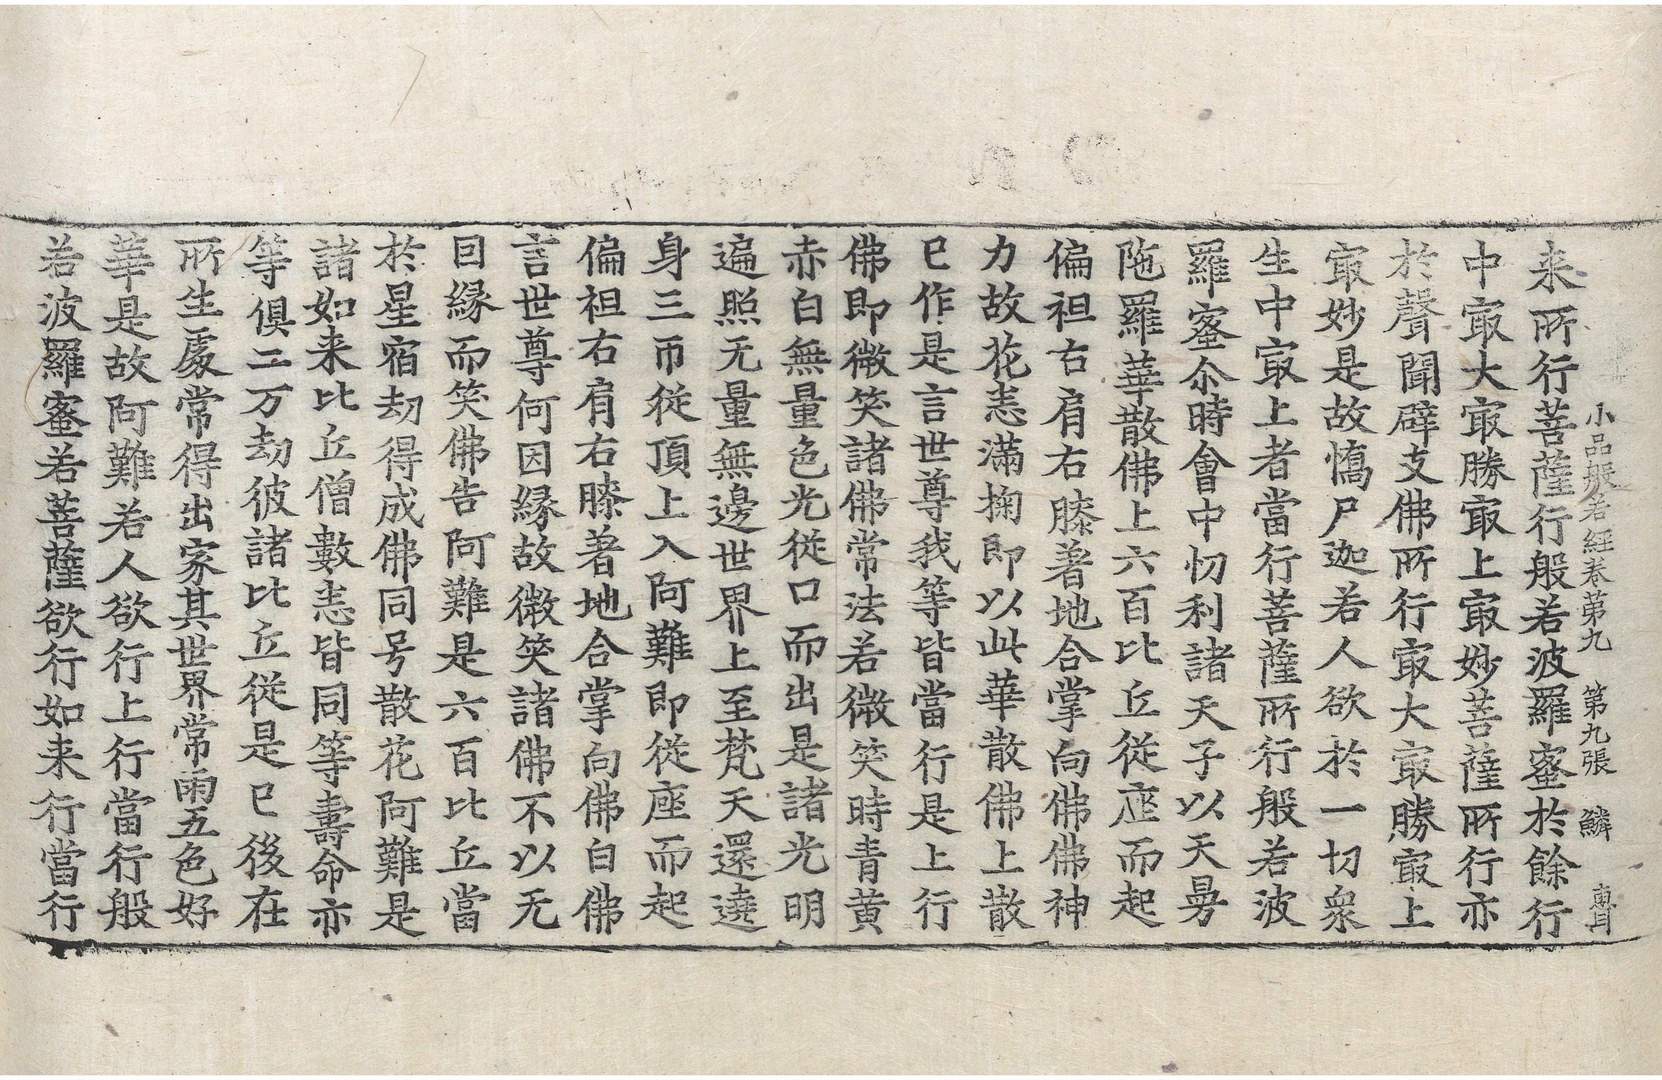 小品般若經卷第九 第九張 鱗
来所行菩薩行般若波羅蜜於餘行
中㝡大㝡勝㝡上㝡妙菩薩所行亦
於聲聞辟支佛所行㝡大㝡勝㝡上
㝡妙是故憍尸迦若人欲於一切衆
生中㝡上者當行菩薩所行般若波
羅蜜尒時會中忉利諸天子以天曼
陁羅華散佛上六百比丘從座而起
偏袒右肩右膝著地合掌向佛佛神
力故花悉滿掬即以此華散佛上散
已作是言世尊我等皆當行是上行
佛即微笑諸佛常法若微笑時青黄
赤白無量色光従口而出是諸光明
遍照无量無邊世界上至梵天還遶
身三帀從頂上入阿難即從座而起
偏袒右肩右膝著地合掌向佛白佛
言世尊何因緣故微笑諸佛不以无
囙緣而笑佛告阿難是六百比丘當
於星宿劫得成佛同号散花阿難是
諸如来比丘僧數悉皆同等壽命亦
等俱二万劫彼諸比丘從是已後在
所生處常得出家其世界常雨五色好
華是故阿難若人欲行上行當行般
若波羅蜜若菩薩欲行如来行當行